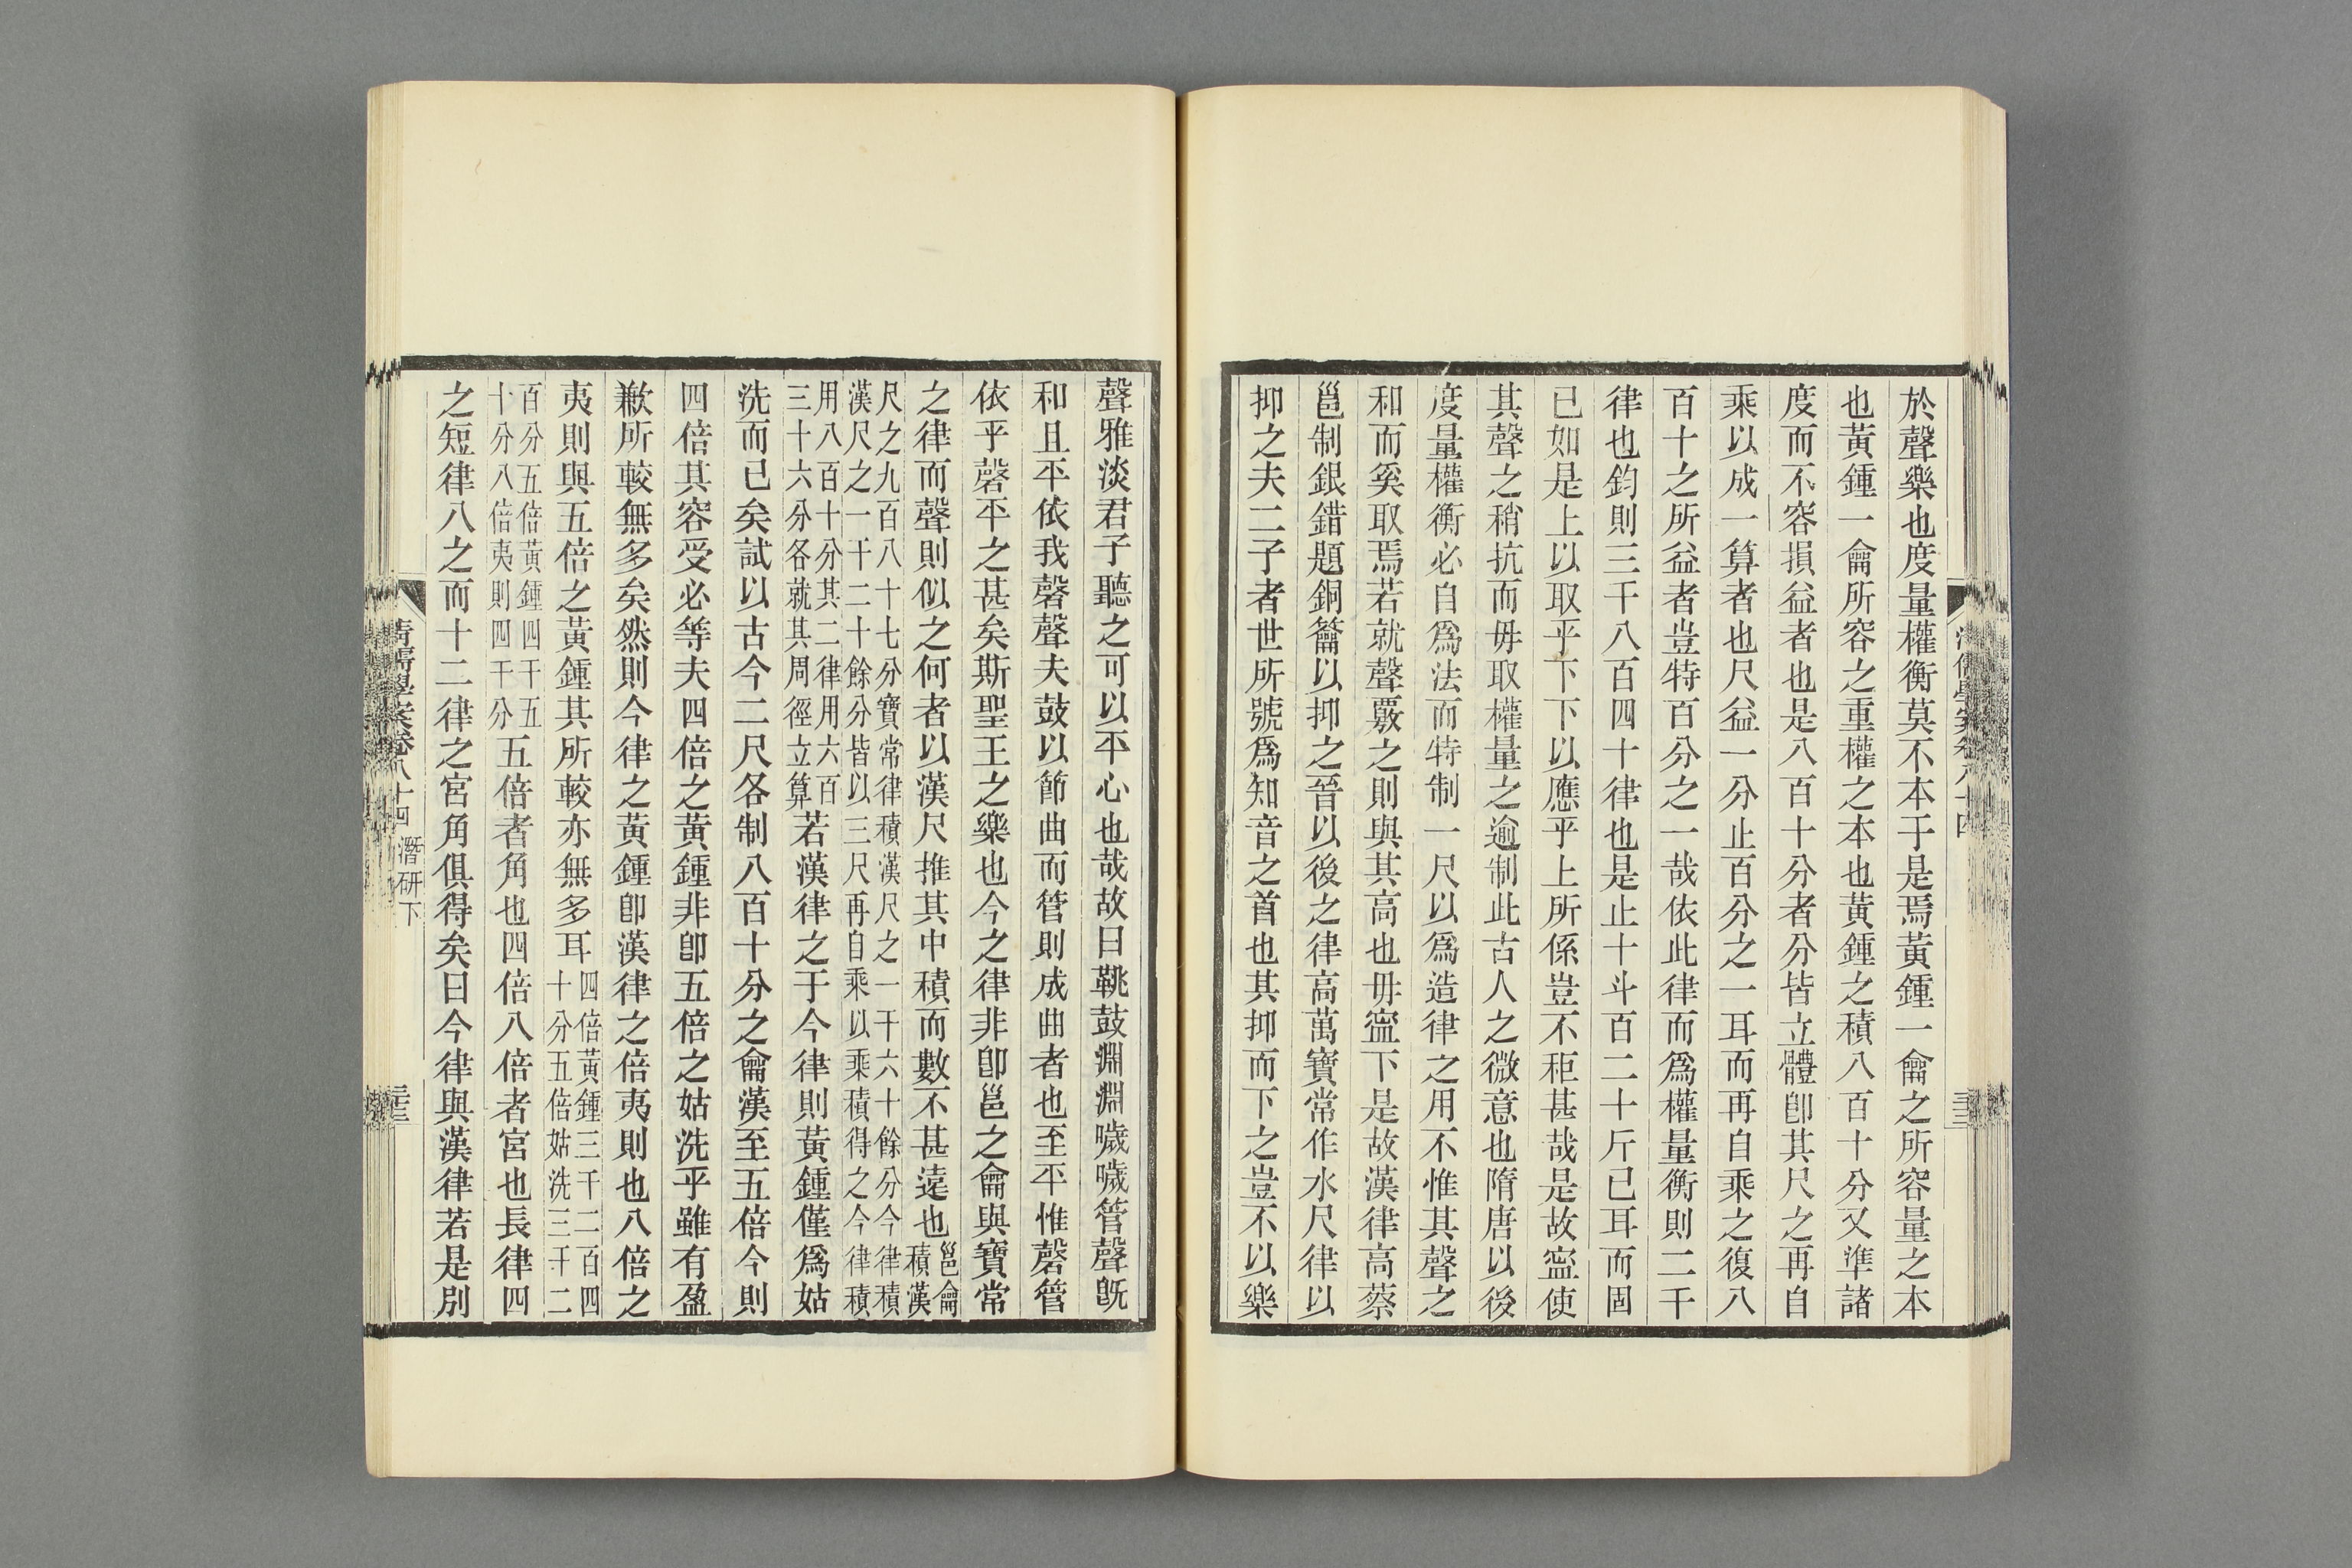 於聲樂也度量權衡莫不本于是焉黃鍾一龠之所容量之本
也黃鍾一龠所容之重權之本也黃鍾之積八百十分又準諸
度而不容損益者也是八百十分者分皆立體卽其尺之再自
乘以成一算者也尺益一分止百分之一耳而再自乘之復八
百十之所益者豈特百分之一哉依此律而爲權量衡則二千
律也鈞則三千八百四十律也是止十斗百二十斤已耳而固
已如是上以取乎下下以應乎上所係豈不秬甚哉是故寍使
其聲之稍抗而毋取權量之逾制此古人之微意也隋唐以後
度量權衡必自爲法而特制一尺以爲造律之用不惟其聲之
和而奚取焉若就聲覈之則與其高也毋寍下是故漢律高蔡
邕制銀錯題銅籥以抑之晉以後之律高萬寶常作水尺律以
抑之夫二子者世所號爲知音之首也其抑而下之豈不以樂
聲雅淡君子聽之可以平心也哉故曰鞉鼓淵淵嘒嘒管聲旣
和且平依我磬聲夫鼓以節曲而管則成曲者也至平惟磬管
依乎磬平之甚矣斯聖王之樂也今之律非卽邕之龠與寶常
之律而聲則似之何者以漢尺推其中積而數不甚遠也邕龠
積漢
尺之九百八十七分寶常律積漢尺之一千六十餘分今律積
漢尺之一千二十餘分皆以三尺再自乘以乘積得之今律積
用八百十分其二律用六百
三十六分各就其周徑立算若漢律之于今律則黃鍾僅爲姑
洗而已矣試以古今二尺各制八百十分之龠漢至五倍今則
四倍其容受必等夫四倍之黃鍾非卽五倍之姑洗乎雖有盈
歉所較無多矣然則今律之黃鍾卽漢律之倍夷則也八倍之
夷則與五倍之黃鍾其所較亦無多耳四倍黃鍾三千二百四
十分五倍姑洗三千二
百分五倍黃鍾四千五
十分八倍夷則四千分五倍者角也四倍八倍者宮也長律四
之短律八之而十二律之宮角俱得矣曰今律與漢律若是別
清儒學案卷八十四 潛研下